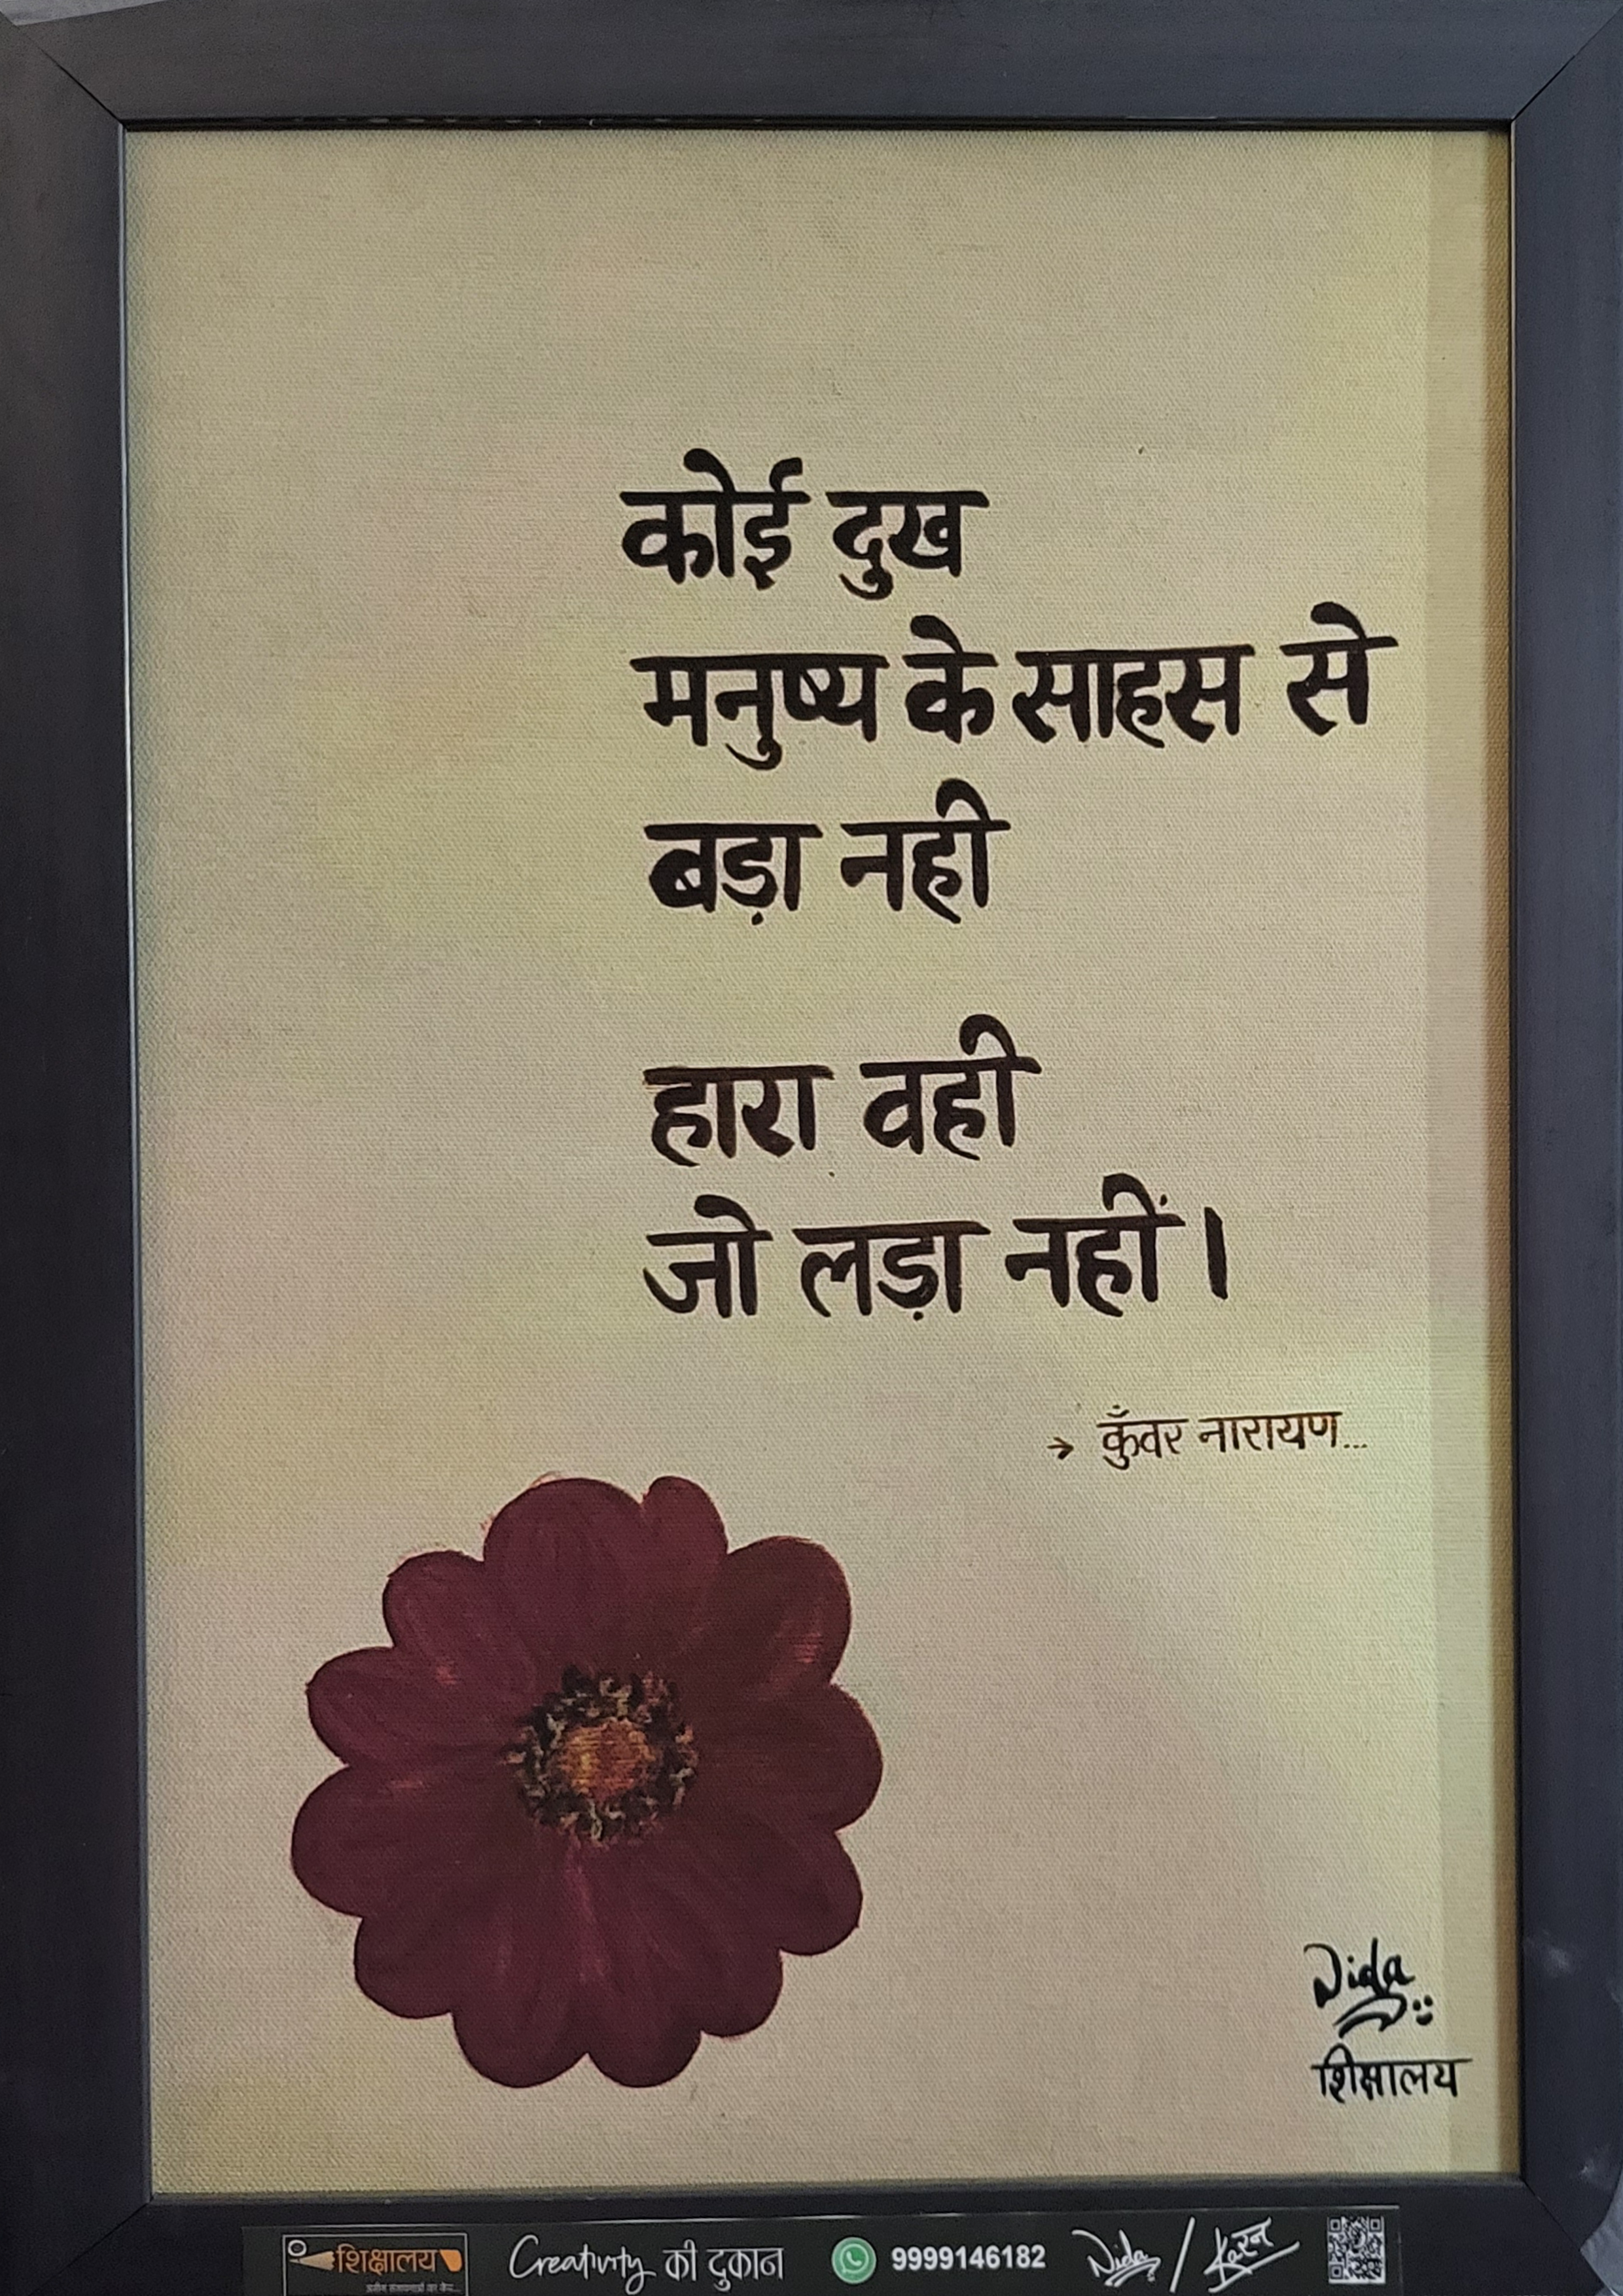 कोई दुख
मनुष्य के साहस से
बड़ा नही
हारा वही
जो लड़ा नहीं।
→ कुँवर नारायण...
Nida
शिक्षालय
शिक्षालय
Creativity की दुकान
9999146182
Nida / करन